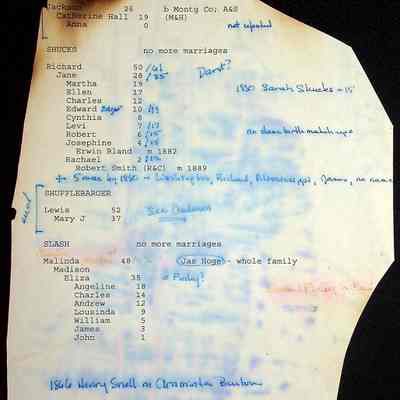 Jackson 26 b Montg Co; A&S
Catherine Hall 19 (M&H)
Anna 0 not repeated
SHUCKS no more marriages
Richard 50 /61
Jane 26 /35
Martha 19
Ellen 17 1880 Sarah Shucks - 15
Charles 12
Edward 10 /19
Cynthia 8
Levi 7 /17
Robert 6 /15 no clear birth match ups
Josephine 4 /15
Erwin Bland m 1882
Rachael 2 /12
Robert Smith (R&C) m 1889
5 more by 1880 - Washington, Richard, James, no name
SHUFFLEBARGER
Lewis 52
Mary J 37
SLASH no more marriages
Malinda 48 Jas Hoge - whole family
Madison
Eliza 35
Angeline 18
Charles 14
Andrew 12
Lousinda 9
William 5
James 3
John 1
1866 Henry Snell m